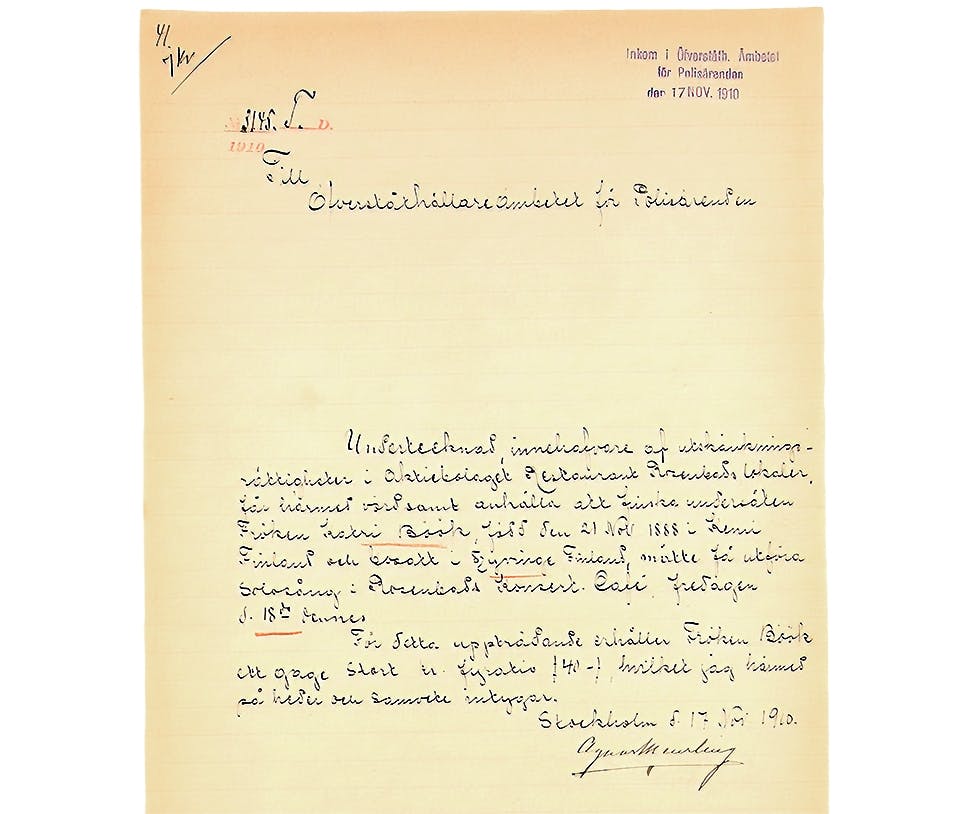 41.
7 kr
Inkom i Öfverståth. Ämbetet
för Polisärenden
den 17 NOV. 1910
№ 3145. T. D.
1910
Till
Öfverståthållareämbetet för Polisärenden
Undertecknad, innehafvare af utskänknings-
rättigheter i Aktiebolaget Restaurant Rosenbads lokaler,
får härmed vördsamt anhålla att finska undersåten
Fröken Katri Böök, född den 21 Nov 1888 i Kemi
Finland och bosatt i Finland, måtte få utföra
solosång i Rosenbads Konsert. Café, fredagen
d. 18de dennes
För detta uppträdande erhåller Fröken Böök
ett gage stort kr. fyratio /40-/, hvilket jag härmed
på heder och samvete intygar.
Stockholm d. 17 Nov 1910.